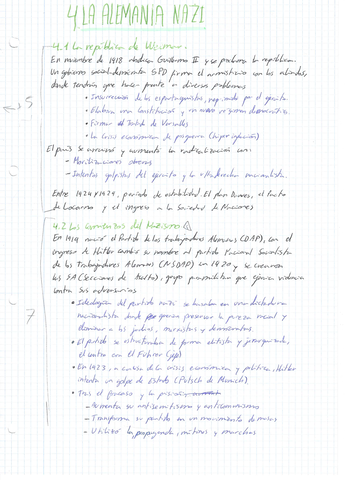 4 LA ALEMANIA NAZI
4.1 La república de Weimar.
En noviembre de 1918 abdica Guillermo II y se proclama la república.
Un gobierno socialdemócrata SPD firma el armisticio con los aliados,
donde tendrán que hacer frente a diversos problemas
• Insurrección de los espartaquistas, reprimida por el ejército.
• Elabora una Constitución, un nuevo régimen democrático.
• Firmar el Tratado de Versalles
• La crisis económica de posguerra (hiperinflación)
El país se arruinó y aumentó la radicalización con:
- Movilizaciones obreras
- Intentos golpistas del ejército y la ultraderecha nacionalista.
Entre 1924 y 1929, periodo de estabilidad. El plan Dawes, el Pacto
de Locarno y el ingreso a la Sociedad de Naciones
5
4.2 Los comienzos del Nazismo
En 1919 nació el Partido de los trabajadores Alemanes (DAP), con el
ingreso de Hitler cambia su nombre al partido Nacional Socialista
de los Trabajadores Alemanes (NSDAP) en 1920 y se crearon
las SA (Secciones de Asalto), grupo paramilitar que ejercía violencia
contra sus adversarios.
7
• Ideología del partido nazi se basaba en una dictadura
nacionalista donde preservar la pureza racial y
eliminar a los judíos, marxistas y demócratas.
• El partido se estructuraba de forma elitista y jerarquizada,
el centro era el Führer (jefe)
• En 1923, a causa de la crisis económica y política, Hitler
intenta un golpe de Estado (Putsch de Munich)
• Tras el fracaso y la prisión
- Aumenta su antisemitismo y anticomunismo
- Transforma su partido en un movimiento de masas
- Utilizó la propaganda, mítines y marchas